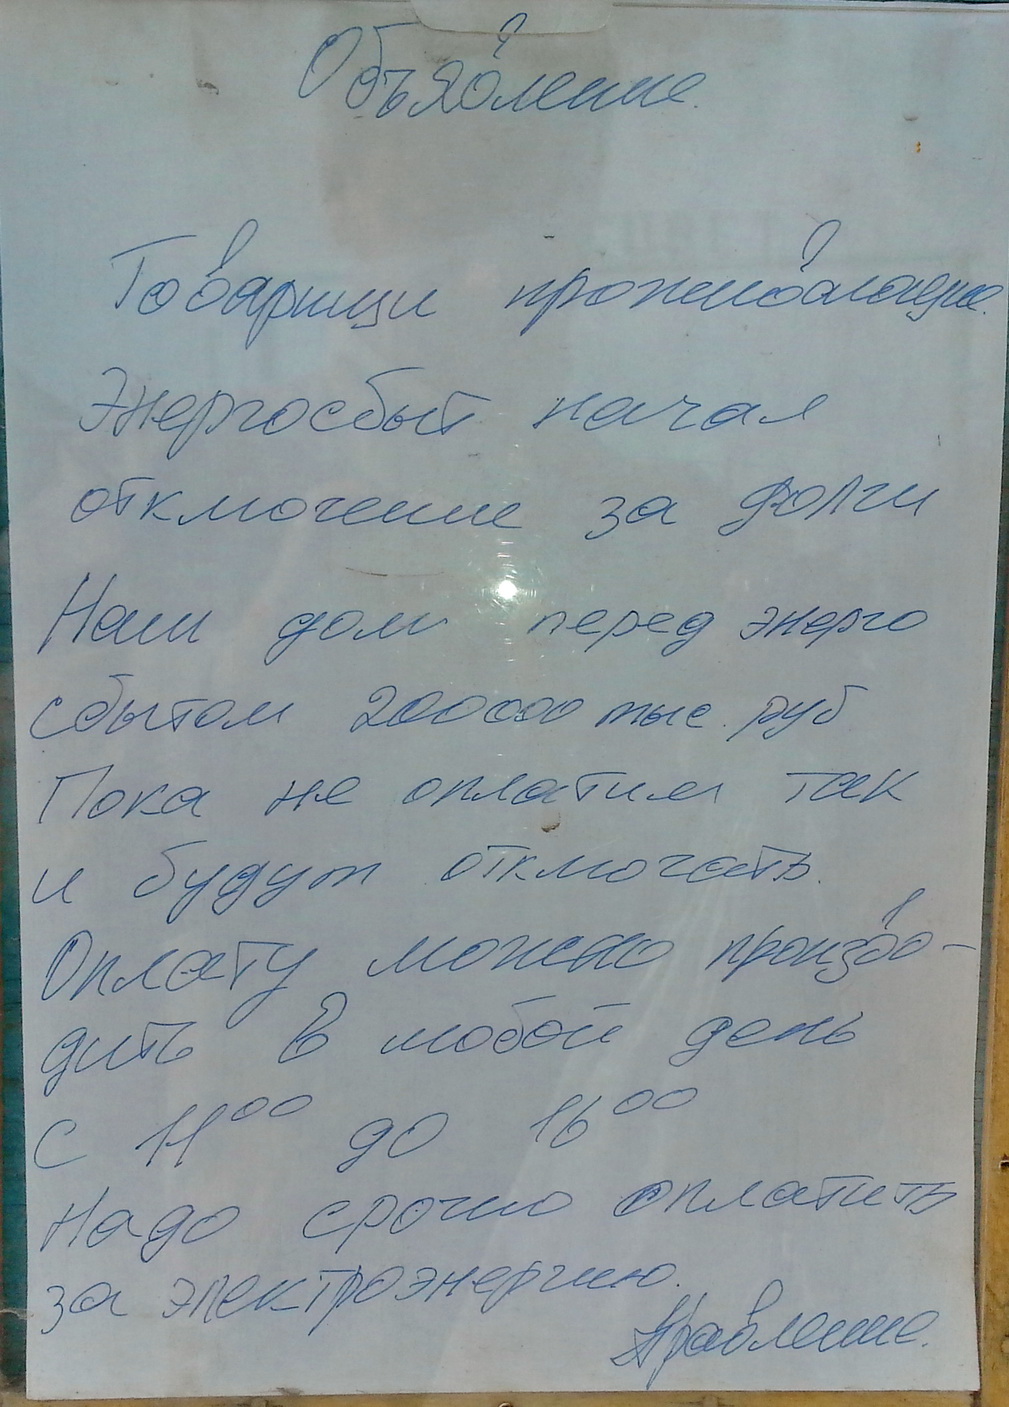 Объявление.
Товарищи проживающие.
Энергосбыт начал
отключение за долги
Наш дом перед энерго
сбытом 200000 тыс. руб
Пока не оплатим так
и будут отключать.
Оплату можно произво-
дить в любой день
С 11⁰⁰ до 16⁰⁰
Надо срочно оплатить
за электроэнергию.
Правление.